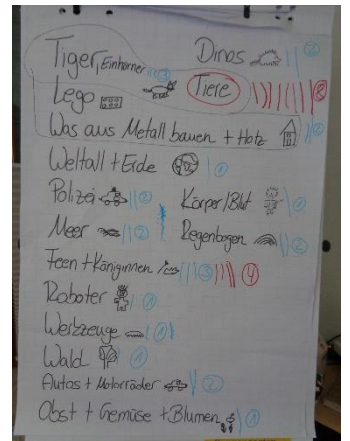 Tiger, Einhörner 3 Dinos 2
Lego Tiere 8
Was aus Metall bauen + Holz 2
Weltall + Erde 1
Polizei 2 Körper/Blut 1
Meer 2 Regenbogen 2
Feen + Königinnen 3 4
Roboter 1
Werkzeuge 1
Wald 1
Autos + Motorräder 2
Obst + Gemüse + Blumen 1